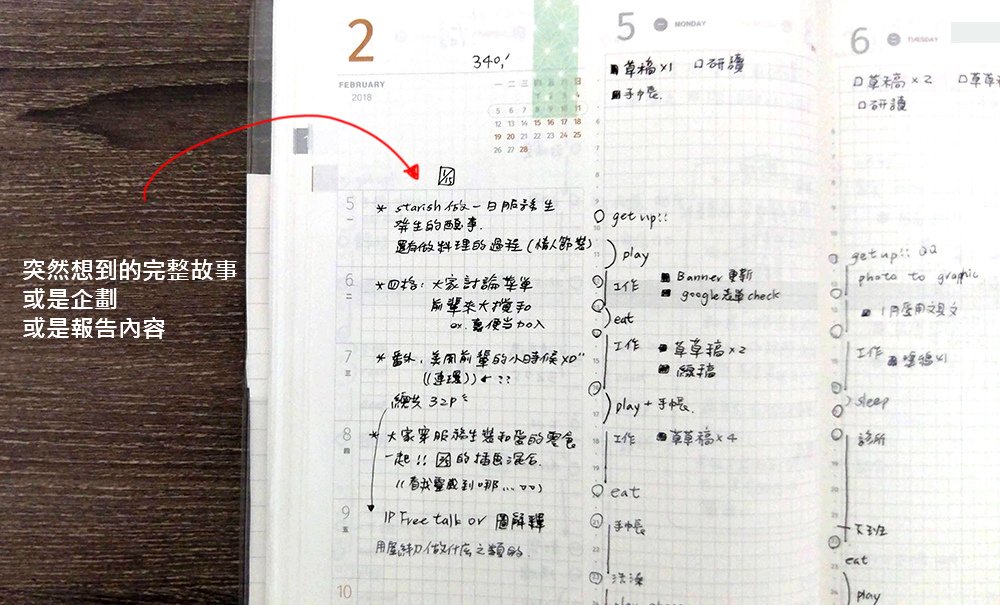 突然想到的完整故事
或是企劃
或是報告內容
2
FEBRUARY
2018
340,
一 二 三 四 五 六 日
5 6 7 8 9 10 11
12 13 14 15 16 17 18
19 20 21 22 23 24 25
26 27 28
1
5
一
* starish做一日服務生
發生的趣事.
還有做料理的過程(情人節裝)
6
二
*四格:大家討論菜單
前輩來大攪和
ex. 便當加入
7
三
*番外:美風前輩的小時候XD
((連環)) ← ??
總共 32P
8
四
*大家穿服務生裝和愛的零食
一起!! 的插画混合.
9
五
1P Free talk or 圖解釋
做什麼之類的.
10
5 MONDAY
■草稿×1 □研讀
■手帳.
get up!!
play
工作 ■ Banner 更新
■ google表單check
eat
工作 ■ 草草稿×2
■ 線稿
play + 手帳.
工作 ■草草稿×4
eat
手帳
洗澡
play
6 TUESDAY
□草稿×2 □草草
□研讀
get up!! QQ
photo to graphic
■ 1月愛用文具文
工作
sleep
診所
下班
eat
play